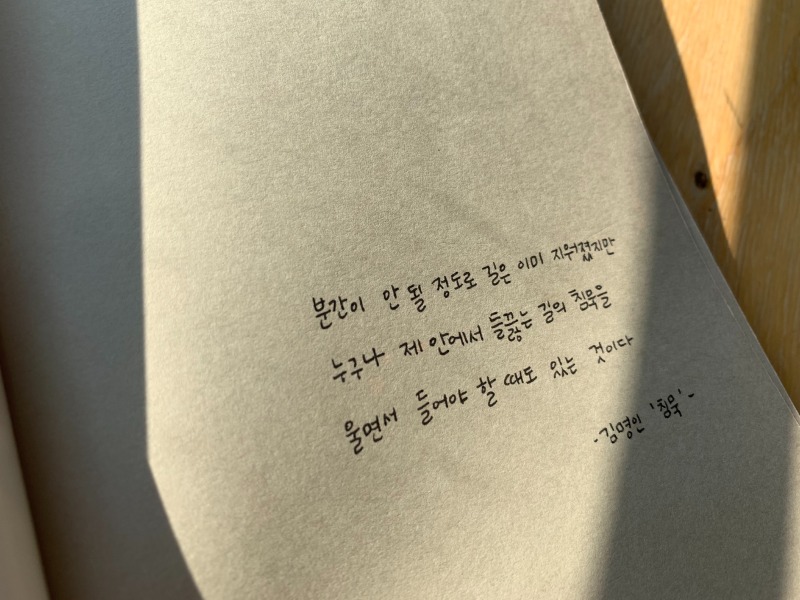 분간이 안 될 정도로 길은 이미 지워졌지만
누구나 제 안에서 들끓는 길의 침묵을
울면서 들어야 할 때도 있는 것이다
-김명인 '침묵'-